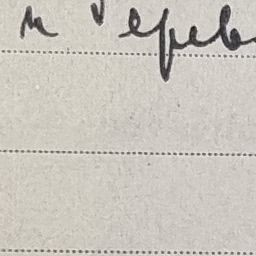 и дерев